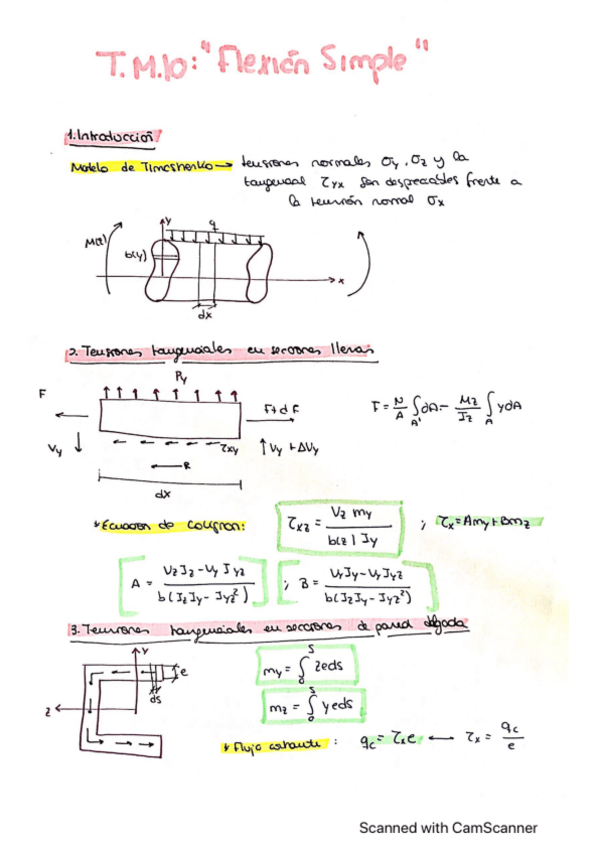 T.M.10: "Flexión Simple"
1. Introducción
Modelo de Timoshenko → tensiones normales σy, σz y la
tangencial τyx son despreciables frente a
la tensión normal σx
y
q
M(z)
b(y)
x
dx
2. Tensiones tangenciales en secciones llenas
Py
F
F+dF
F = N/A ∫A' dA - Mz/Jz ∫A ydA
Vy
τxy
Vy + ΔVy
R
dx
* Ecuación de Colignon: τxz = Vz my / b(z) Jy ; τx = Amy + Bmz
A = VzJz - VyJyz / b(JzJy - Jyz²) ; B = VyJy - VyJyz / b(JzJy - Jyz²)
3. Tensiones tangenciales en secciones de pared delgada
y
e
ds
z
my = ∫0^s zeds
mz = ∫0^s yeds
* Flujo cortante: qc = τxe ⟷ τx = qc/e
Scanned with CamScanner